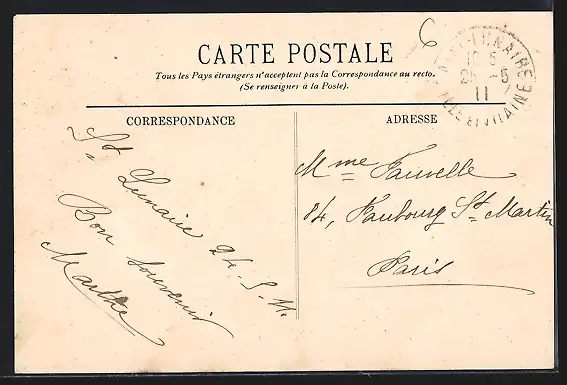 6
CARTE POSTALE
Tous les Pays étrangers n'acceptent pas la Correspondance au recto.
(Se renseigner à la Poste).
CORRESPONDANCE
ADRESSE
St Lunaire 24-5-11.
Bon souvenir
Marthe
Mme Fauvelle
84, Faubourg St Martin
Paris
LUNAIRE
11
ILLE ET VILAINE